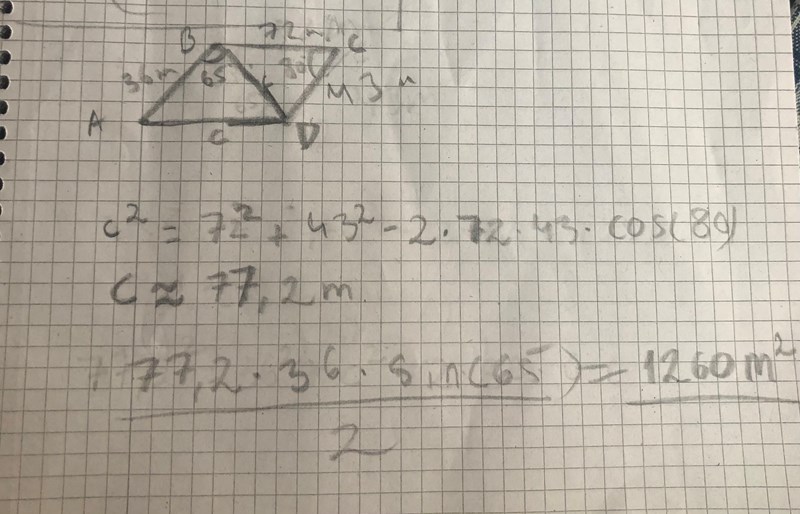 B 72 m C
36 m 65 43 m
A c D
c² = 72² + 43² - 2·72·43·cos(80)
c ≈ 77,2 m
77,2 · 36 · sin(65) = 1260 m²
2